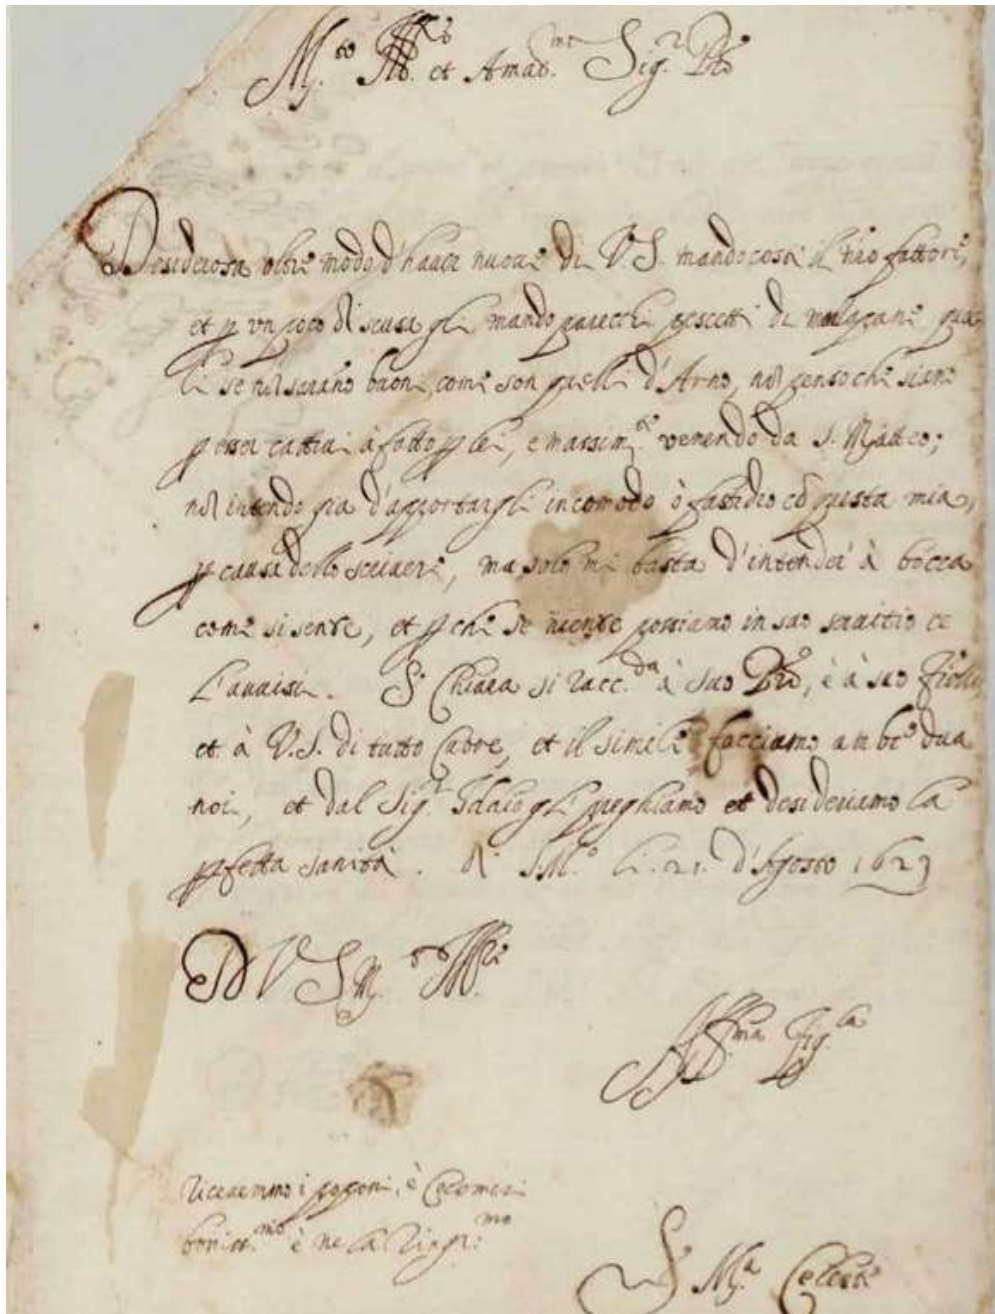 M.to Ill.re et Amat.mo Sig.r P.re
Desiderosa oltre modo d'haver nuove di V.S. mando costì il nro fattore,
et p un poco di scusa gli mando parecchi pescetti di marzapane, qua
li se nō sarāno buoni, come son quelli d'Arno, nō penso che siano
p esser cattivi à fatto p lei, e massim.e venendo da S. Matteo;
nō intendo gia d'apportargli incomodo ò fastidio cō questa mia,
p causa dello scivere, ma solo mi basta d'intender à bocca
come si sente, et p che se niente possiamo in suo servitio ce
l'avvisi. S.r Chiara si racc.da à suo P.re, è à suo
et à V.S. di tutto Cuore, et il simile facciamo anbe dua
noi, et dal Sig.r Iddio gli preghiamo et desideriamo la
pfetta sanità. di S.M.o li. 21. d'Agosto 1623
D V S M.to Ill.re
Aff.ma Fig.la
Ricevemmo i poponi, è Cocomeri
bonissi.mo è ne la ringr:mo
S.r M.a Celeste